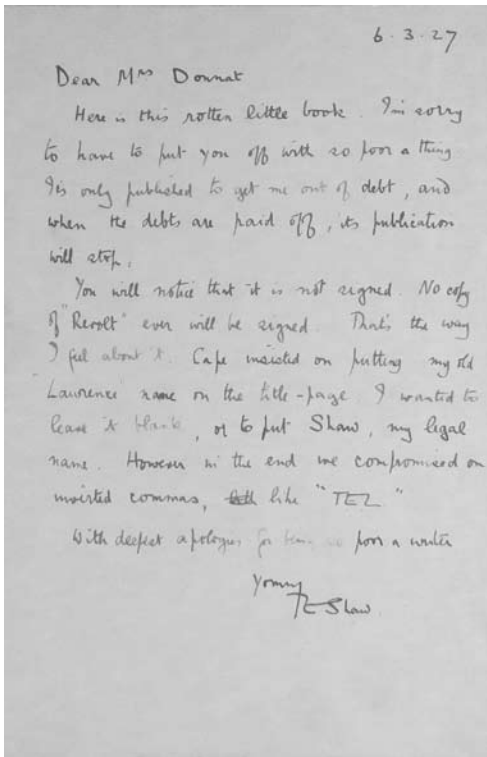 6.3.27
Dear Mrs Donnat
Here is this rotten little book. I'm sorry
to have to put you off with so poor a thing
It is only published to get me out of debt, and
when the debts are paid off, its publication
will stop.
You will notice that it is not signed. No copy
of "Revolt" ever will be signed. That's the way
I feel about it. Cape insisted on putting my old
Lawrence name on the title-page. I wanted to
leave it blank, or to put Shaw, my legal
name. However in the end we compromised on
inverted commas, like "TEL"
With deepest apologies for being so poor a writer
Yours
TE Shaw.